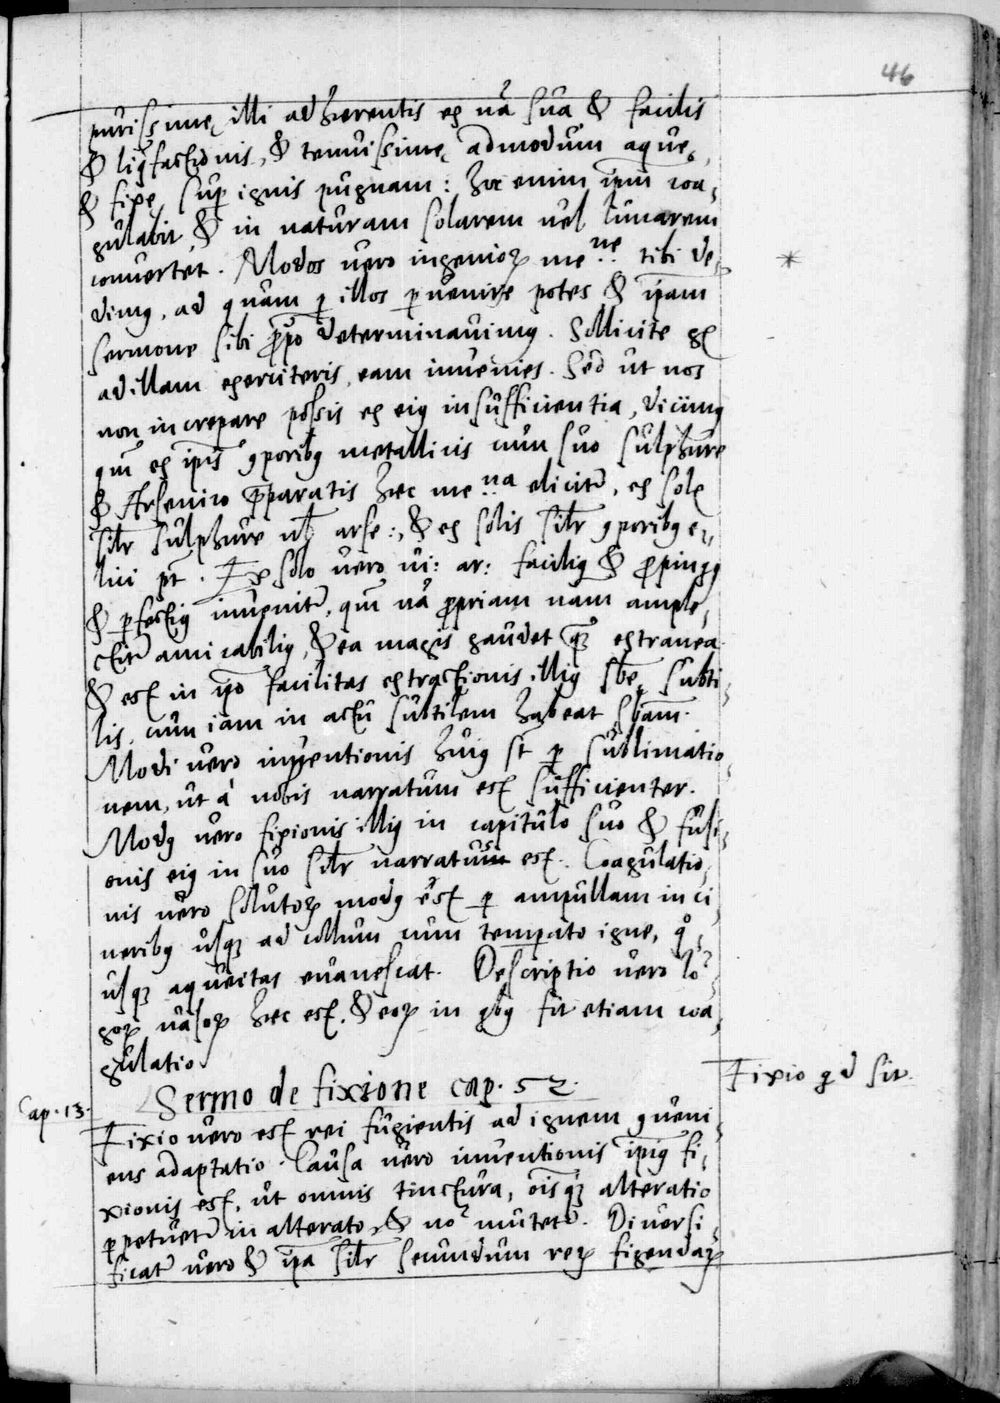 46
purissime, illi adhærentis ex nã sua & facilis
& liq̃factionis, & tenuissime, admodum aque,
& fixe, sup ignis pugnam: hoc enim ipm coa,
gulabit, & in naturam solarem uel lunarem
conuertet. Modos uero ingenioꝝ me:ne tibi de,
dimꝯ, ad quam ꝑ illos ꝑuenire potes & ipam
sermone sibi ꝓpo determinauimꝯ. Sollicite
ad illam exerciteris, eam inuenies. Sed ut nos
non increpare possis ex eiꝯ insufficientia, dicimꝯ
qm ex ipis ꝯporibꝯ metallinis cum suo sulphure
& Arsenico p̃paratis hæc me:na elicitr, ex sole
silr sulphure ul arse:, & ex solis silr ꝯporibꝯ e,
lici pt. Ex solo uero ui: ar: faciliꝯ & ꝓpinqꝯ
& ꝑfectiꝯ inuenitr, qm nã ꝓpriam nam ample,
ctitr amicabiliꝯ, & ea magis gaudet qꝫ extranea
& est in ipo facilitas extractionis illiꝯ sbe, subti,
lis, cum iam in actu subtilem habeat sbam.
Modi uero inuentionis huiꝯ st ꝑ sublimatio,
nem, ut à nobis narratum est sufficienter.
Modꝯ uero fixionis illiꝯ in capitulo suo & fusi,
onis eiꝯ in suo silr narratum est. Coagulatio,
nis uero solutoꝝ modꝯ est ꝑ ampullam in ci,
neribꝯ usqꝫ ad collum cum temperato igne, qo,
usqꝫ aqueitas euanescat. Descriptio uero lo,
goꝝ uasoꝝ hæc est. & eoꝝ in qbꝯ fit etiam coa,
gulatio
Sermo de fixione cap. 52.
Fixio qd sit.
Cap. 13.
Fixio uero est rei fugientis ad ignem ꝯueni
ens adaptatio. Causa uero inuentionis ipiꝯ fi,
xionis est, ut omnis tinctura, oisqꝫ alteratio
ꝑpetuetr in alterato, & no mutetr. Diuersi,
ficatr uero & ipa silr secundum reꝝ figendaꝝ